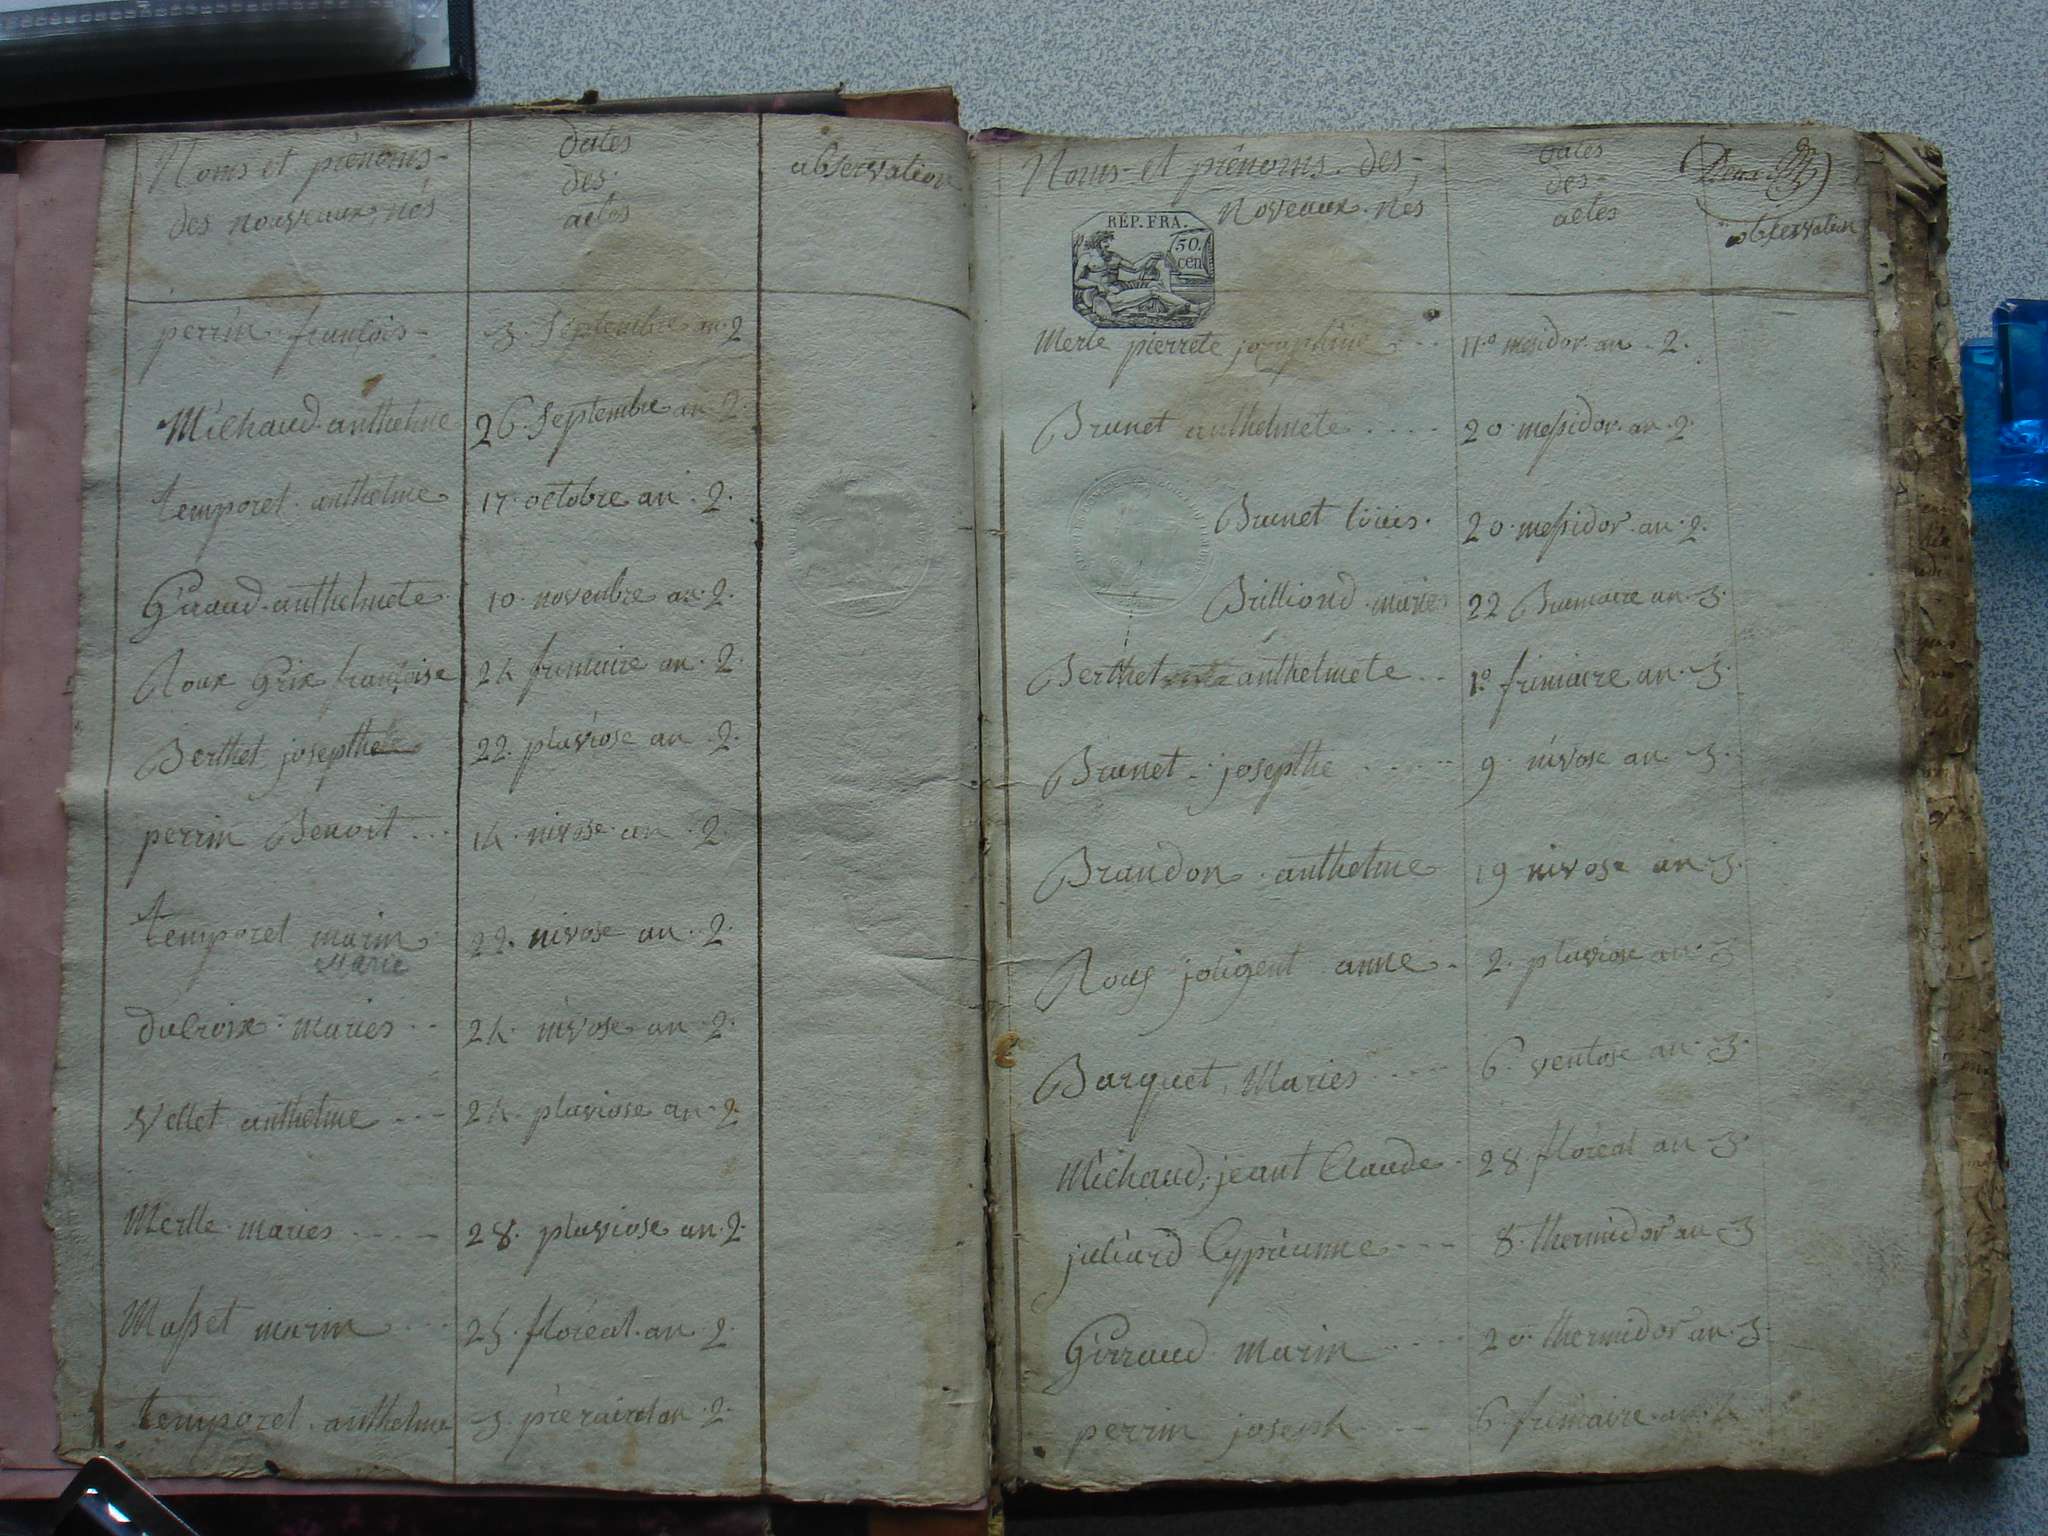 Noms et prénoms
des nouveaux nés
dates
des
actes
observation
perrin françois 3. Septembre an 2
Michaud anthelme 26. Septembre an 2.
temporel anthelme 17. octobre an. 2.
Giraud anthelmete 10. novembre an. 2.
Roux Grix françoise 24 frimaire an. 2.
Berthet josepthe 22. pluviose an. 2.
perrin Benoit 14. nivose an. 2.
temporel marin 22. nivose an. 2.
Marie
duCroix maries 24. nivose an. 2.
Vellet anthelme 24. pluviose an. 2.
Merlle maries 28. pluviose an. 2.
Masset marin 25. floréal an. 2.
temporel anthelme 3. prérairel an. 2.
Noms et prénoms des
Noveaux nés
dates
des
actes
Deux
observation
RÉP. FRA.
50.
cen
Merle pierrete josephine 11.o mesidor an. 2.
Brunet anthelmete 20 messidor an. 2.
Brunet loüis. 20 messidor an. 2.
Brilliond maries 22 Brumaire an. 3.
Berthet anthelmete 1.o frimaire an. 3.
Brunet josepthe 9. nivose an 3.
Braudon anthelme 19 nivose an. 3.
Roux joligent anne 2. pluviose an. 3
Barquet Maries 6. ventose an. 3.
Michaud, jeant Claude 28. floréal an 3.
juliard Cypriumne 8. thermidor an 3
Girraud marin 20. thermidor an. 3.
perrin joseph 6. frimaire an. 4